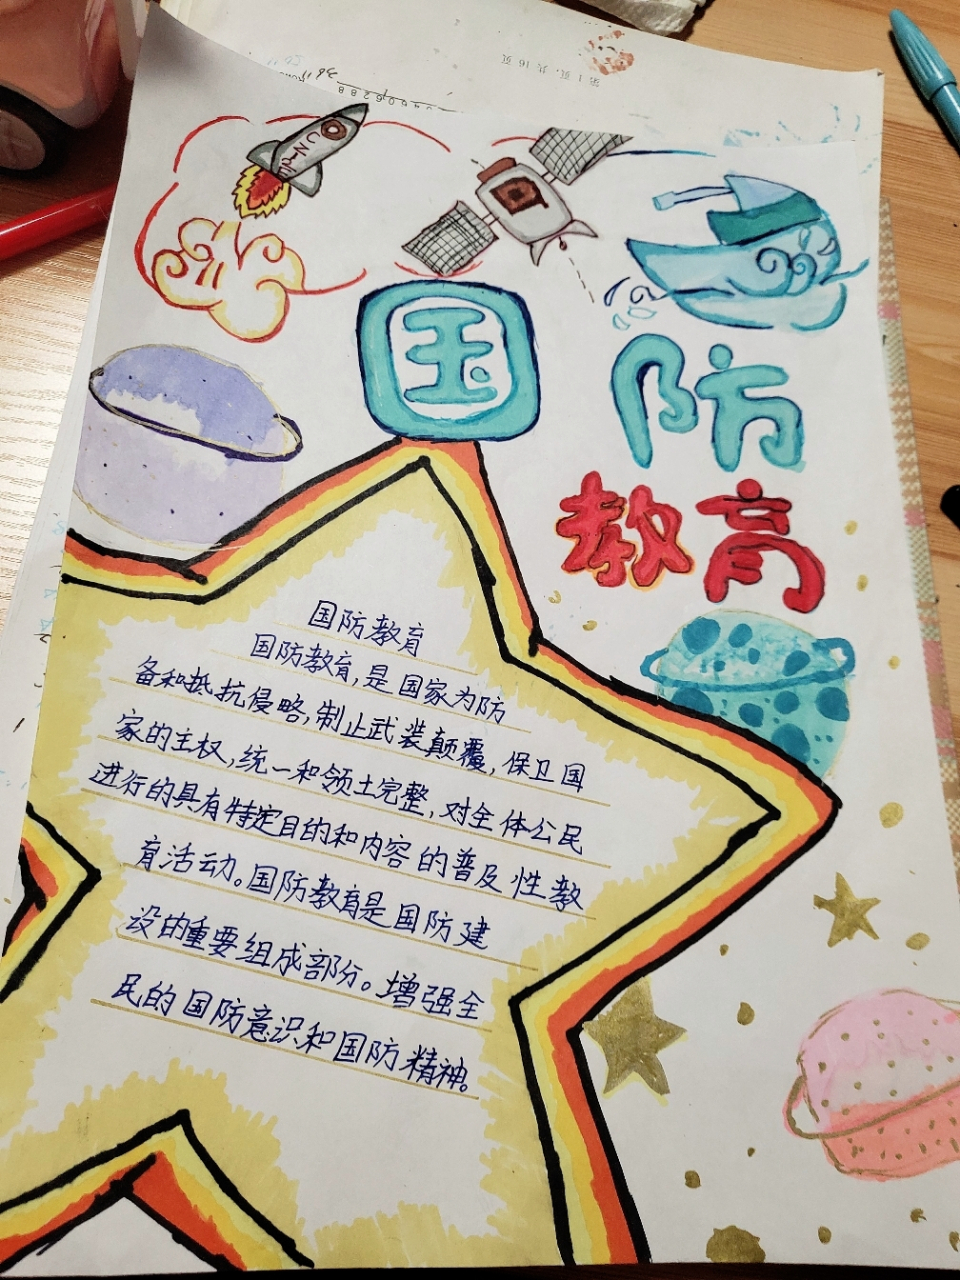 第1页,共16页
国防
教育
国防教育
国防教育,是国家为防
备和抵抗侵略,制止武装颠覆,保卫国
家的主权,统一和领土完整,对全体公民
进行的具有特定目的和内容的普及性教
育活动。国防教育是国防建
设的重要组成部分。增强全
民的国防意识和国防精神。